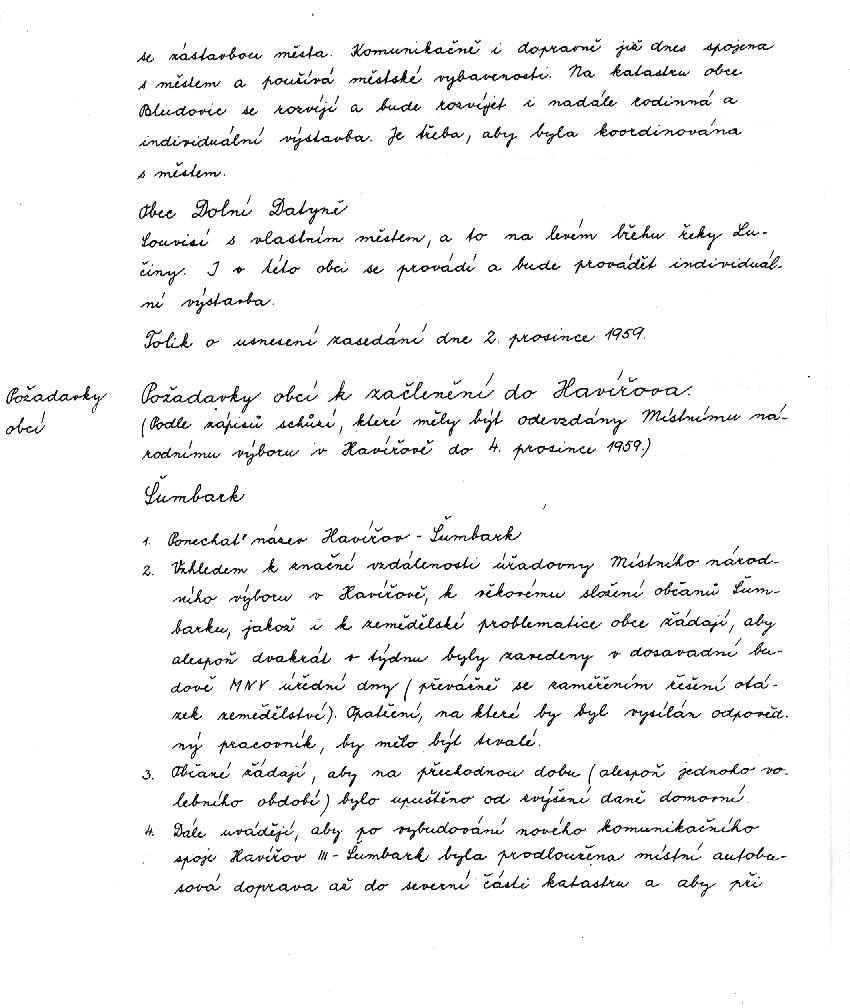 se zástavbou města. Komunikačně i dopravně již dnes spojena
s městem a používá městské vybavenosti. Na katastru obce
Bludovic se rozvíjí a bude rozvíjet i nadále rodinná a
individuální výstavba. Je třeba, aby byla koordinována
s městem.
Obec Dolní Datyně
Souvisí s vlastním městem, a to na levém břehu řeky Lu-
činy. I v této obci se provádí a bude provádět individuál-
ní výstavba.
Tolik o usnesení zasedání dne 2. prosince 1959.
Požadavky
obcí
Požadavky obcí k začlenění do Havířova.
(Podle zápisů schůzí, které měly být odevzdány Místnímu ná-
rodnímu výboru v Havířově do 4. prosince 1959.)
Šumbark
1. Ponechat název Havířov - Šumbark
2. Vzhledem k značné vzdálenosti úřadovny Místního národ-
ního výboru v Havířově, k věkovému složení občanů Šum-
barku, jakož i k zemědělské problematice obce žádají, aby
alespoň dvakrát v týdnu byly zavedeny v dosavadní bu-
dově MNV úřední dny (převážně se zaměřením řešení otá-
zek zemědělství). Opatření, na které by byl vysílán odpověd-
ný pracovník, by mělo být trvalé.
3. Občané žádají, aby na přechodnou dobu (alespoň jednoho vo-
lebního období) bylo upuštěno od zvýšení daně domovní.
4. Dále uvádějí, aby po vybudování nového komunikačního
spoje Havířov III - Šumbark byla prodloužena místní autobu-
sová doprava až do severní části katastru a aby při